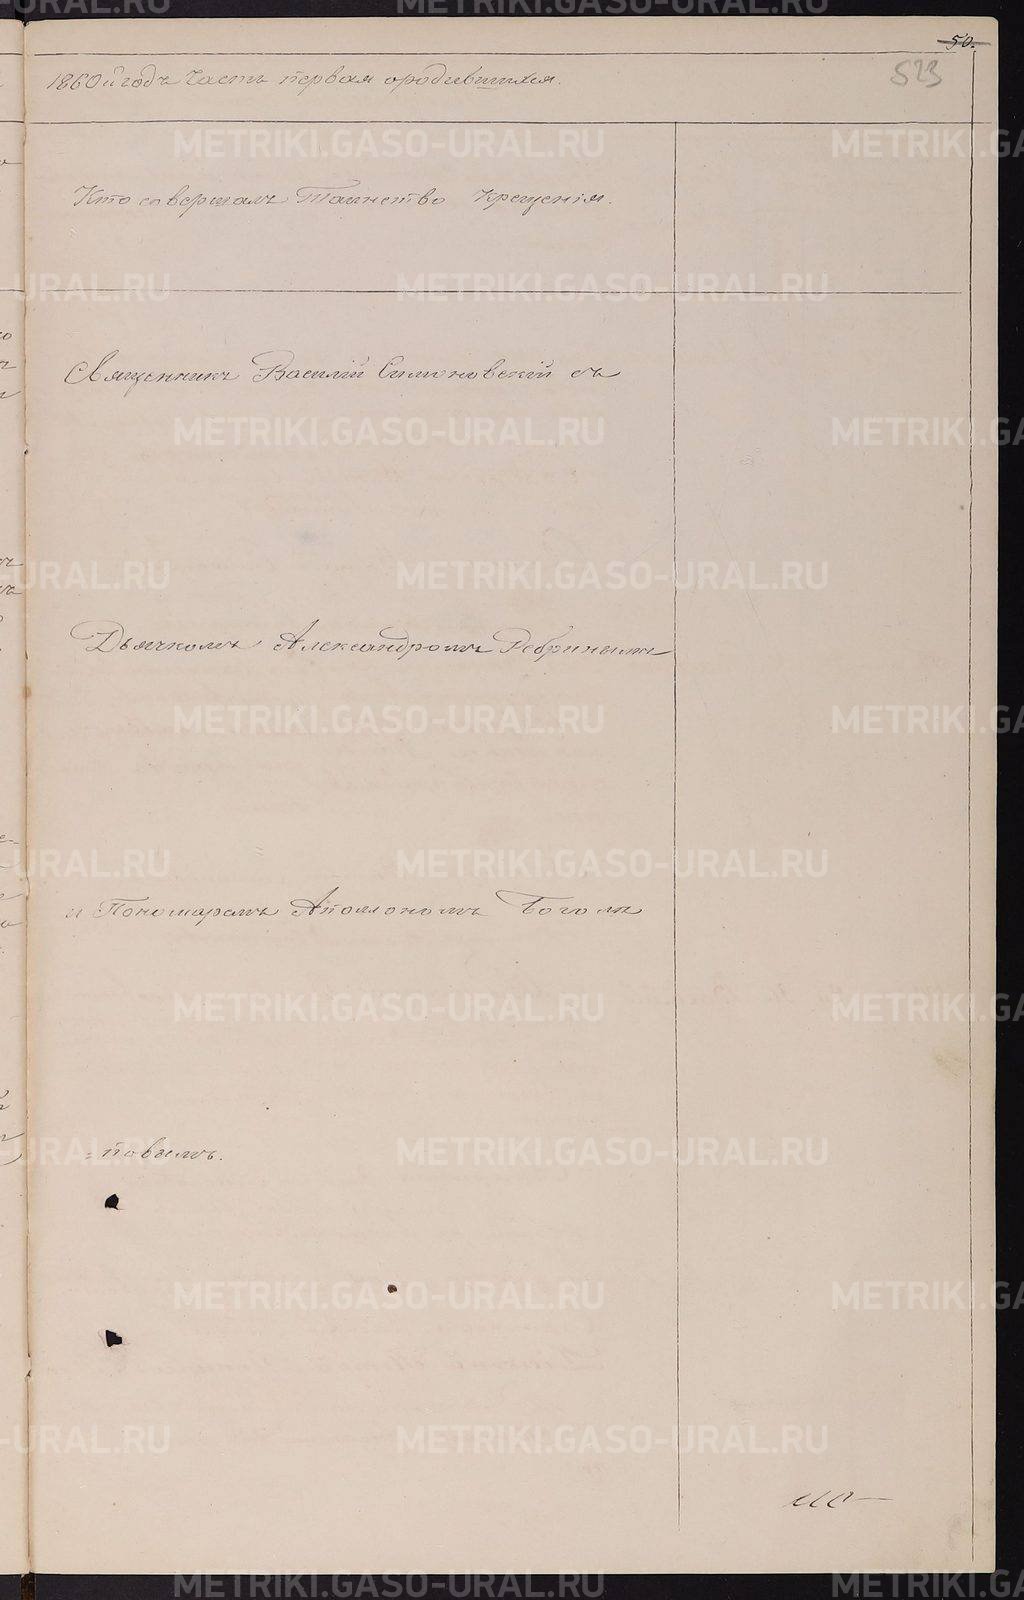 50.
523
1860й годъ Часть первая ородившихся.
Кто совершалъ Таинство Крещенія.
Священникъ Василій Симоновскій съ
Дьячкомъ Александромъ Ребринымъ
и Пономаремъ Аполлономъ Богола
=повымъ.
METRIKI.GASO-URAL.RU